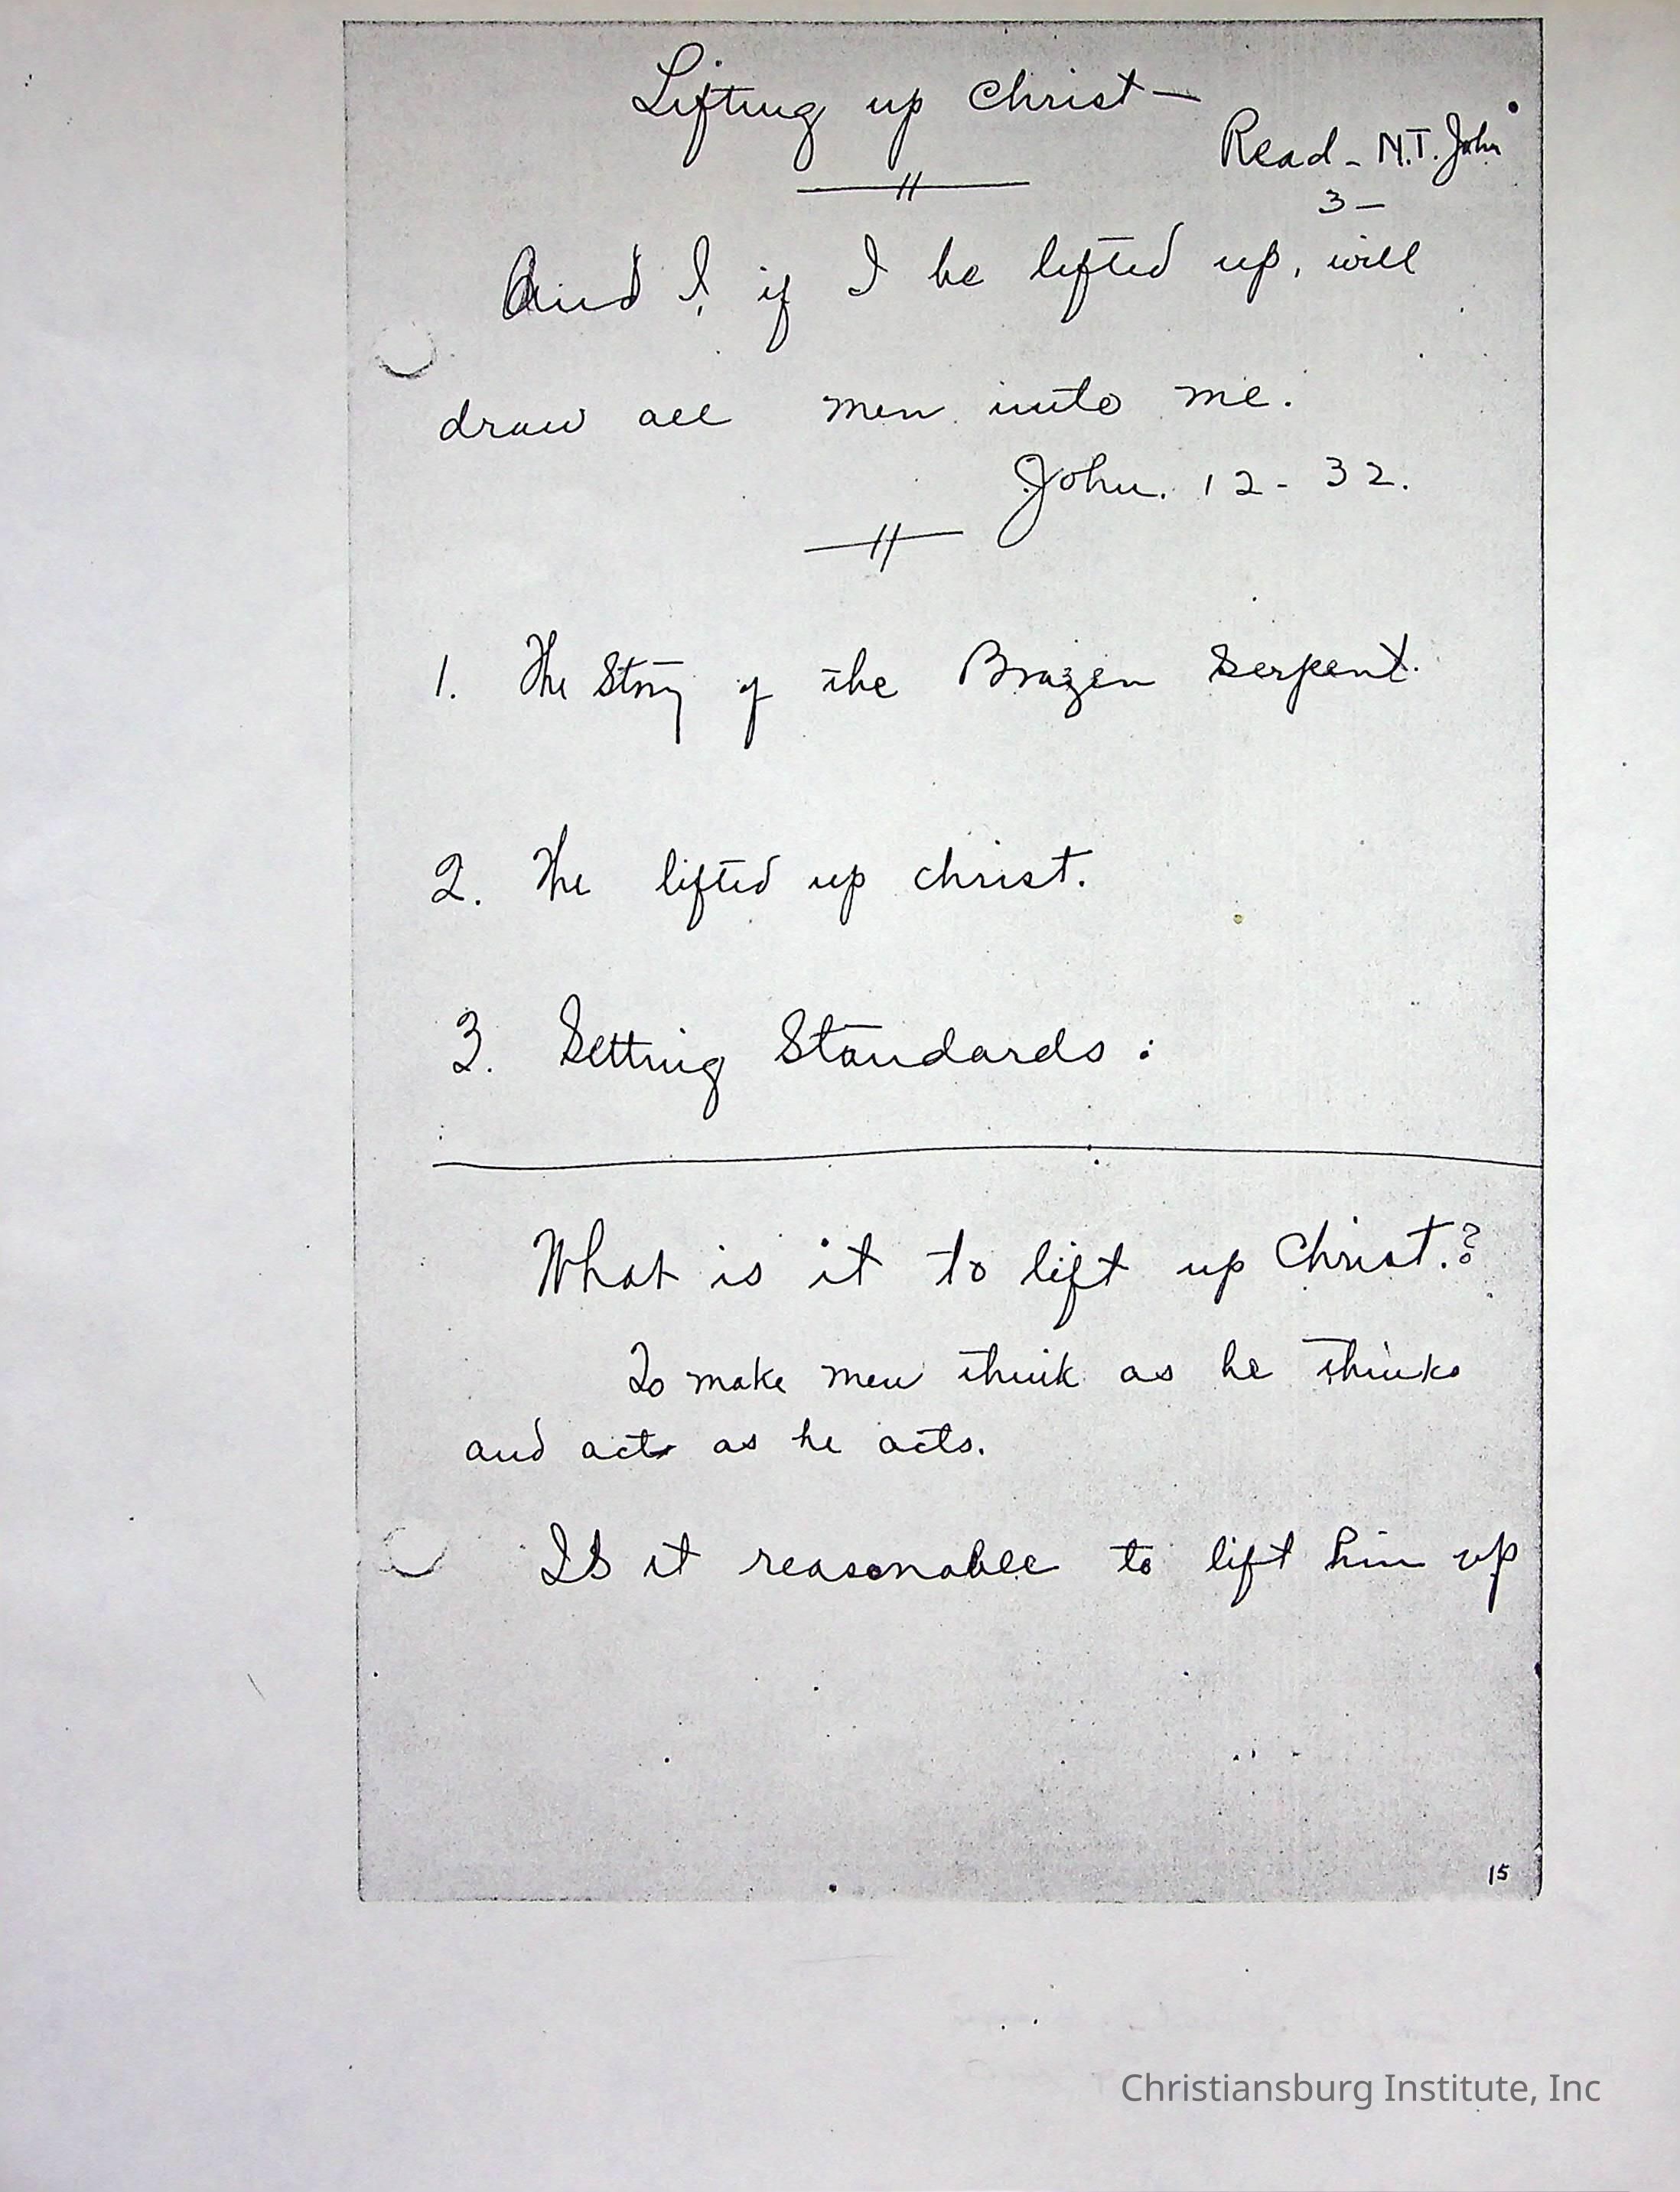 Lifting up Christ —
Read - N.T. John
3 —
And I, if I be lifted up, will
draw all men unto me.
John. 12 - 32.
1. The Story of the Brazen Serpent.
2. The lifted up christ.
3. Setting Standards :
What is it to lift up Christ.?
To make men think as he thinks
and act as he acts.
Is it reasonable to lift him up
15
Christiansburg Institute, Inc